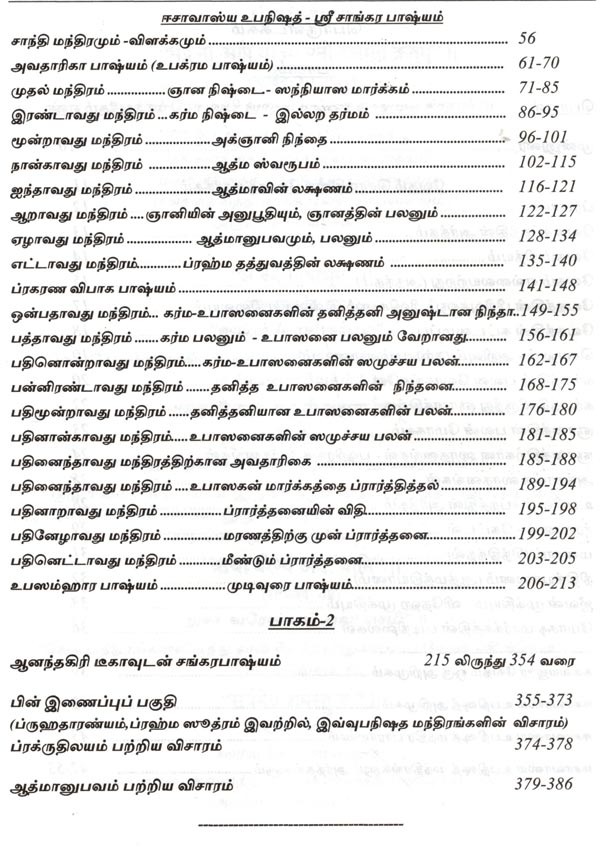 ஈசாவாஸ்ய உபநிஷத் - ஸ்ரீ சாங்கர பாஷ்யம்
சாந்தி மந்திரமும் -விளக்கமும் ............ 56
அவதாரிகா பாஷ்யம் (உபக்ரம பாஷ்யம்) ............ 61-70
முதல் மந்திரம் ............ஞான நிஷ்டை- ஸந்நியாஸ மார்க்கம் ............ 71-85
இரண்டாவது மந்திரம் ...கர்ம நிஷ்டை - இல்லற தர்மம் ............ 86-95
மூன்றாவது மந்திரம் ............அக்ஞானி நிந்தை ............ 96-101
நான்காவது மந்திரம் ............ஆத்ம ஸ்வரூபம் ............ 102-115
ஐந்தாவது மந்திரம் ............ஆத்மாவின் லக்ஷணம் ............ 116-121
ஆறாவது மந்திரம் ....ஞானியின் அனுபூதியும், ஞானத்தின் பலனும் ............ 122-127
ஏழாவது மந்திரம் ............ ஆத்மானுபவமும், பலனும் ............ 128-134
எட்டாவது மந்திரம்............ப்ரஹ்ம தத்துவத்தின் லக்ஷணம் ............ 135-140
ப்ரகரண விபாக பாஷ்யம் ............ 141-148
ஒன்பதாவது மந்திரம்... கர்ம-உபாஸனைகளின் தனித்தனி அனுஷ்டான நிந்தா..149-155
பத்தாவது மந்திரம் .......கர்ம பலனும் - உபாஸனை பலனும் வேறானது............ 156-161
பதினொன்றாவது மந்திரம்.....கர்ம-உபாஸனைகளின் ஸமுச்சய பலன்............ 162-167
பன்னிரண்டாவது மந்திரம் .......தனித்த உபாஸனைகளின் நிந்தனை............ 168-175
பதிமூன்றாவது மந்திரம் ......தனித்தனியான உபாஸனைகளின் பலன்............ 176-180
பதினான்காவது மந்திரம்.....உபாஸனைகளின் ஸமுச்சய பலன் ............ 181-185
பதினைந்தாவது மந்திரத்திற்கான அவதாரிகை ............ 185-188
பதினைந்தாவது மந்திரம் ....உபாஸகன் மார்க்கத்தை ப்ரார்த்தித்தல் ............ 189-194
பதினாறாவது மந்திரம் ............ப்ரார்த்தனையின் விதி............ 195-198
பதினேழாவது மந்திரம் ............மரணத்திற்கு முன் ப்ரார்த்தனை............ 199-202
பதினெட்டாவது மந்திரம் ............மீண்டும் ப்ரார்த்தனை............ 203-205
உபஸம்ஹார பாஷ்யம் ............முடிவுரை பாஷ்யம்............ 206-213
பாகம்-2
ஆனந்தகிரி டீகாவுடன் சங்கரபாஷ்யம் 215 லிருந்து 354 வரை
பின் இணைப்புப் பகுதி 355-373
(ப்ருஹதாரண்யம்,ப்ரஹ்ம ஸூத்ரம் இவற்றில், இவ்வுபநிஷத மந்திரங்களின் விசாரம்)
ப்ரக்ருதிலயம் பற்றிய விசாரம் 374-378
ஆத்மானுபவம் பற்றிய விசாரம் 379-386